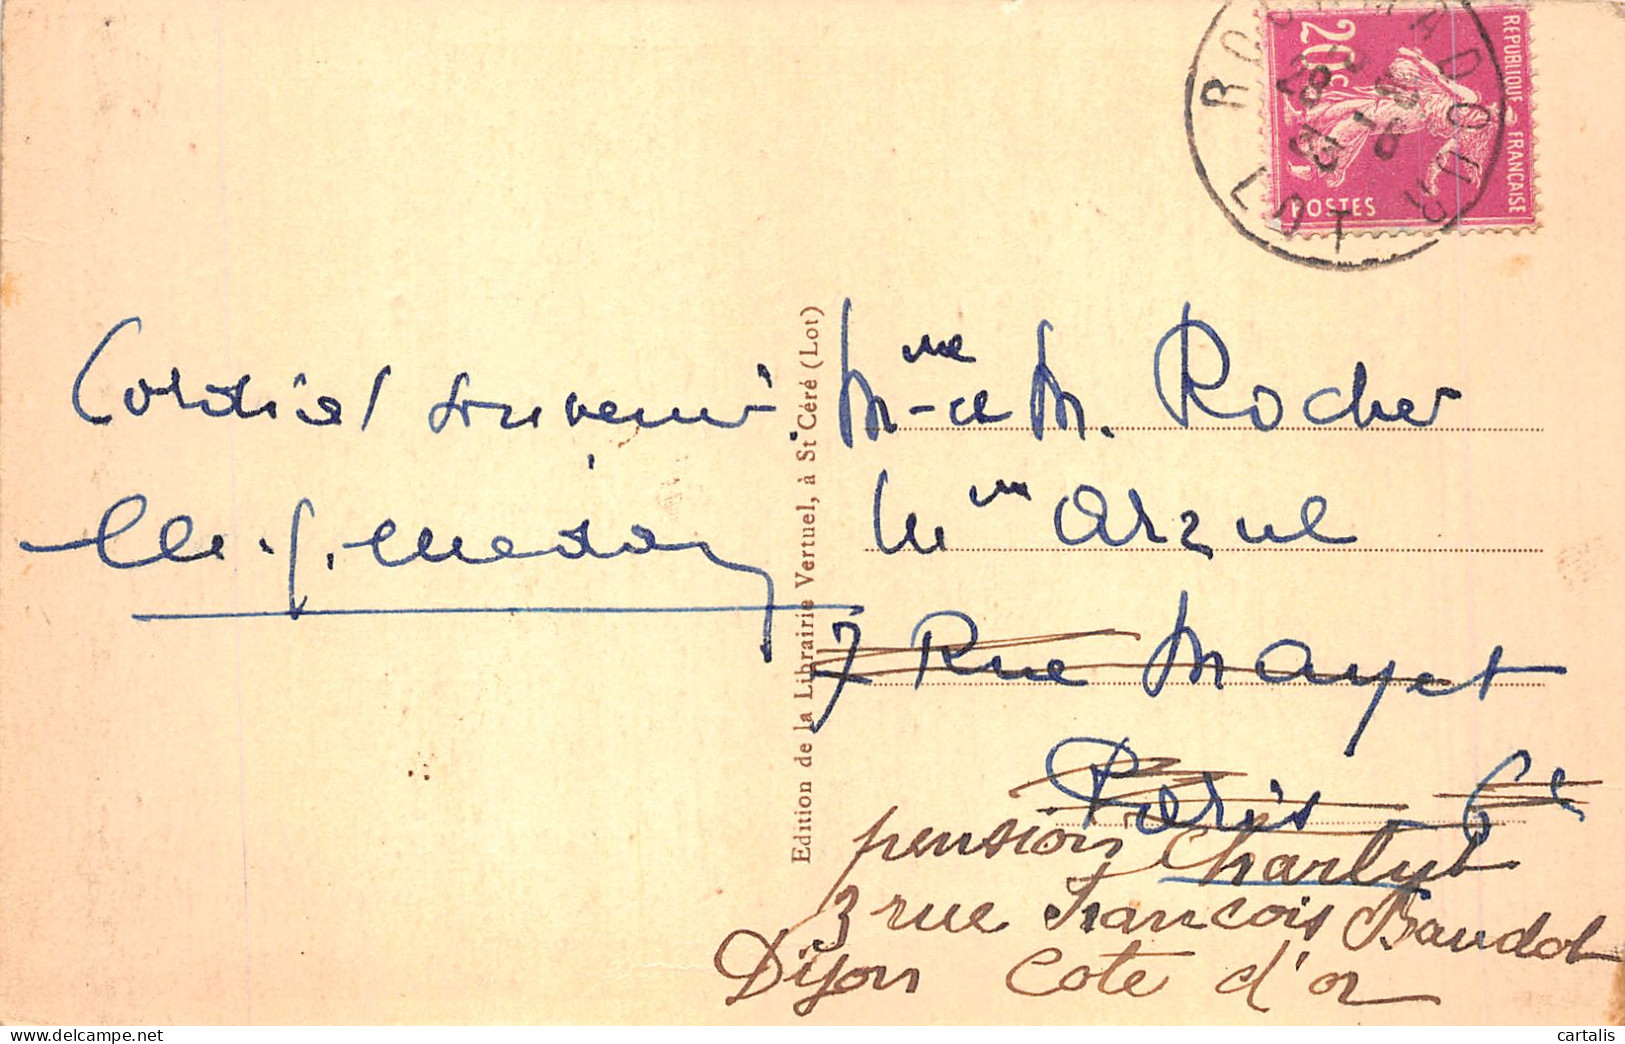 ROCAMADOUR
LOT
REPUBLIQUE FRANCAISE
20c
POSTES
Cordial souvenir
Edition de la Librairie Vertuel, à St Céré (Lot)
Mme et M. Rocher
Mme Arzul
7 Rue Mayet
Paris 6e
pension Charly
3 rue Francois Baudot
Dijon Cote d'or
cartalis